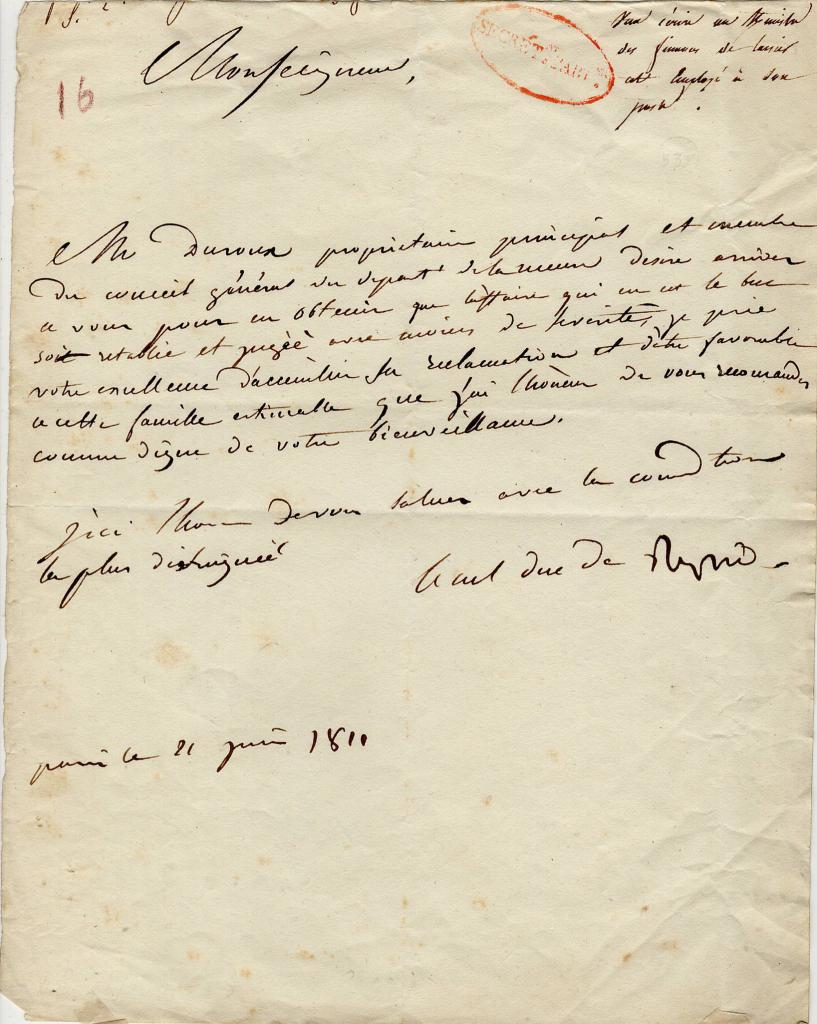 16
Monseigneur,
SECRETARIAT
écrire au Ministre
des finances de laisser
cet Employé à son
poste.
Mr Duroux proprietaire principal et membre
du conseil général du depart' de la meuse desire arriver
a vous pour en obtenir que l'affaire qui en est le but
soit retablie et jugéé avec moins de severités, je prie
votre excellence d'acceuillir sa reclamation et d'être favorable
a cette famille estimable que j'ai l'honeur de vous recomander
comme digne de votre bienveillance.
j'ai l'hon de vous saluer avec la consideration
la plus distinguéé
le mal duc de Reggio
paris le 21 juin 1811